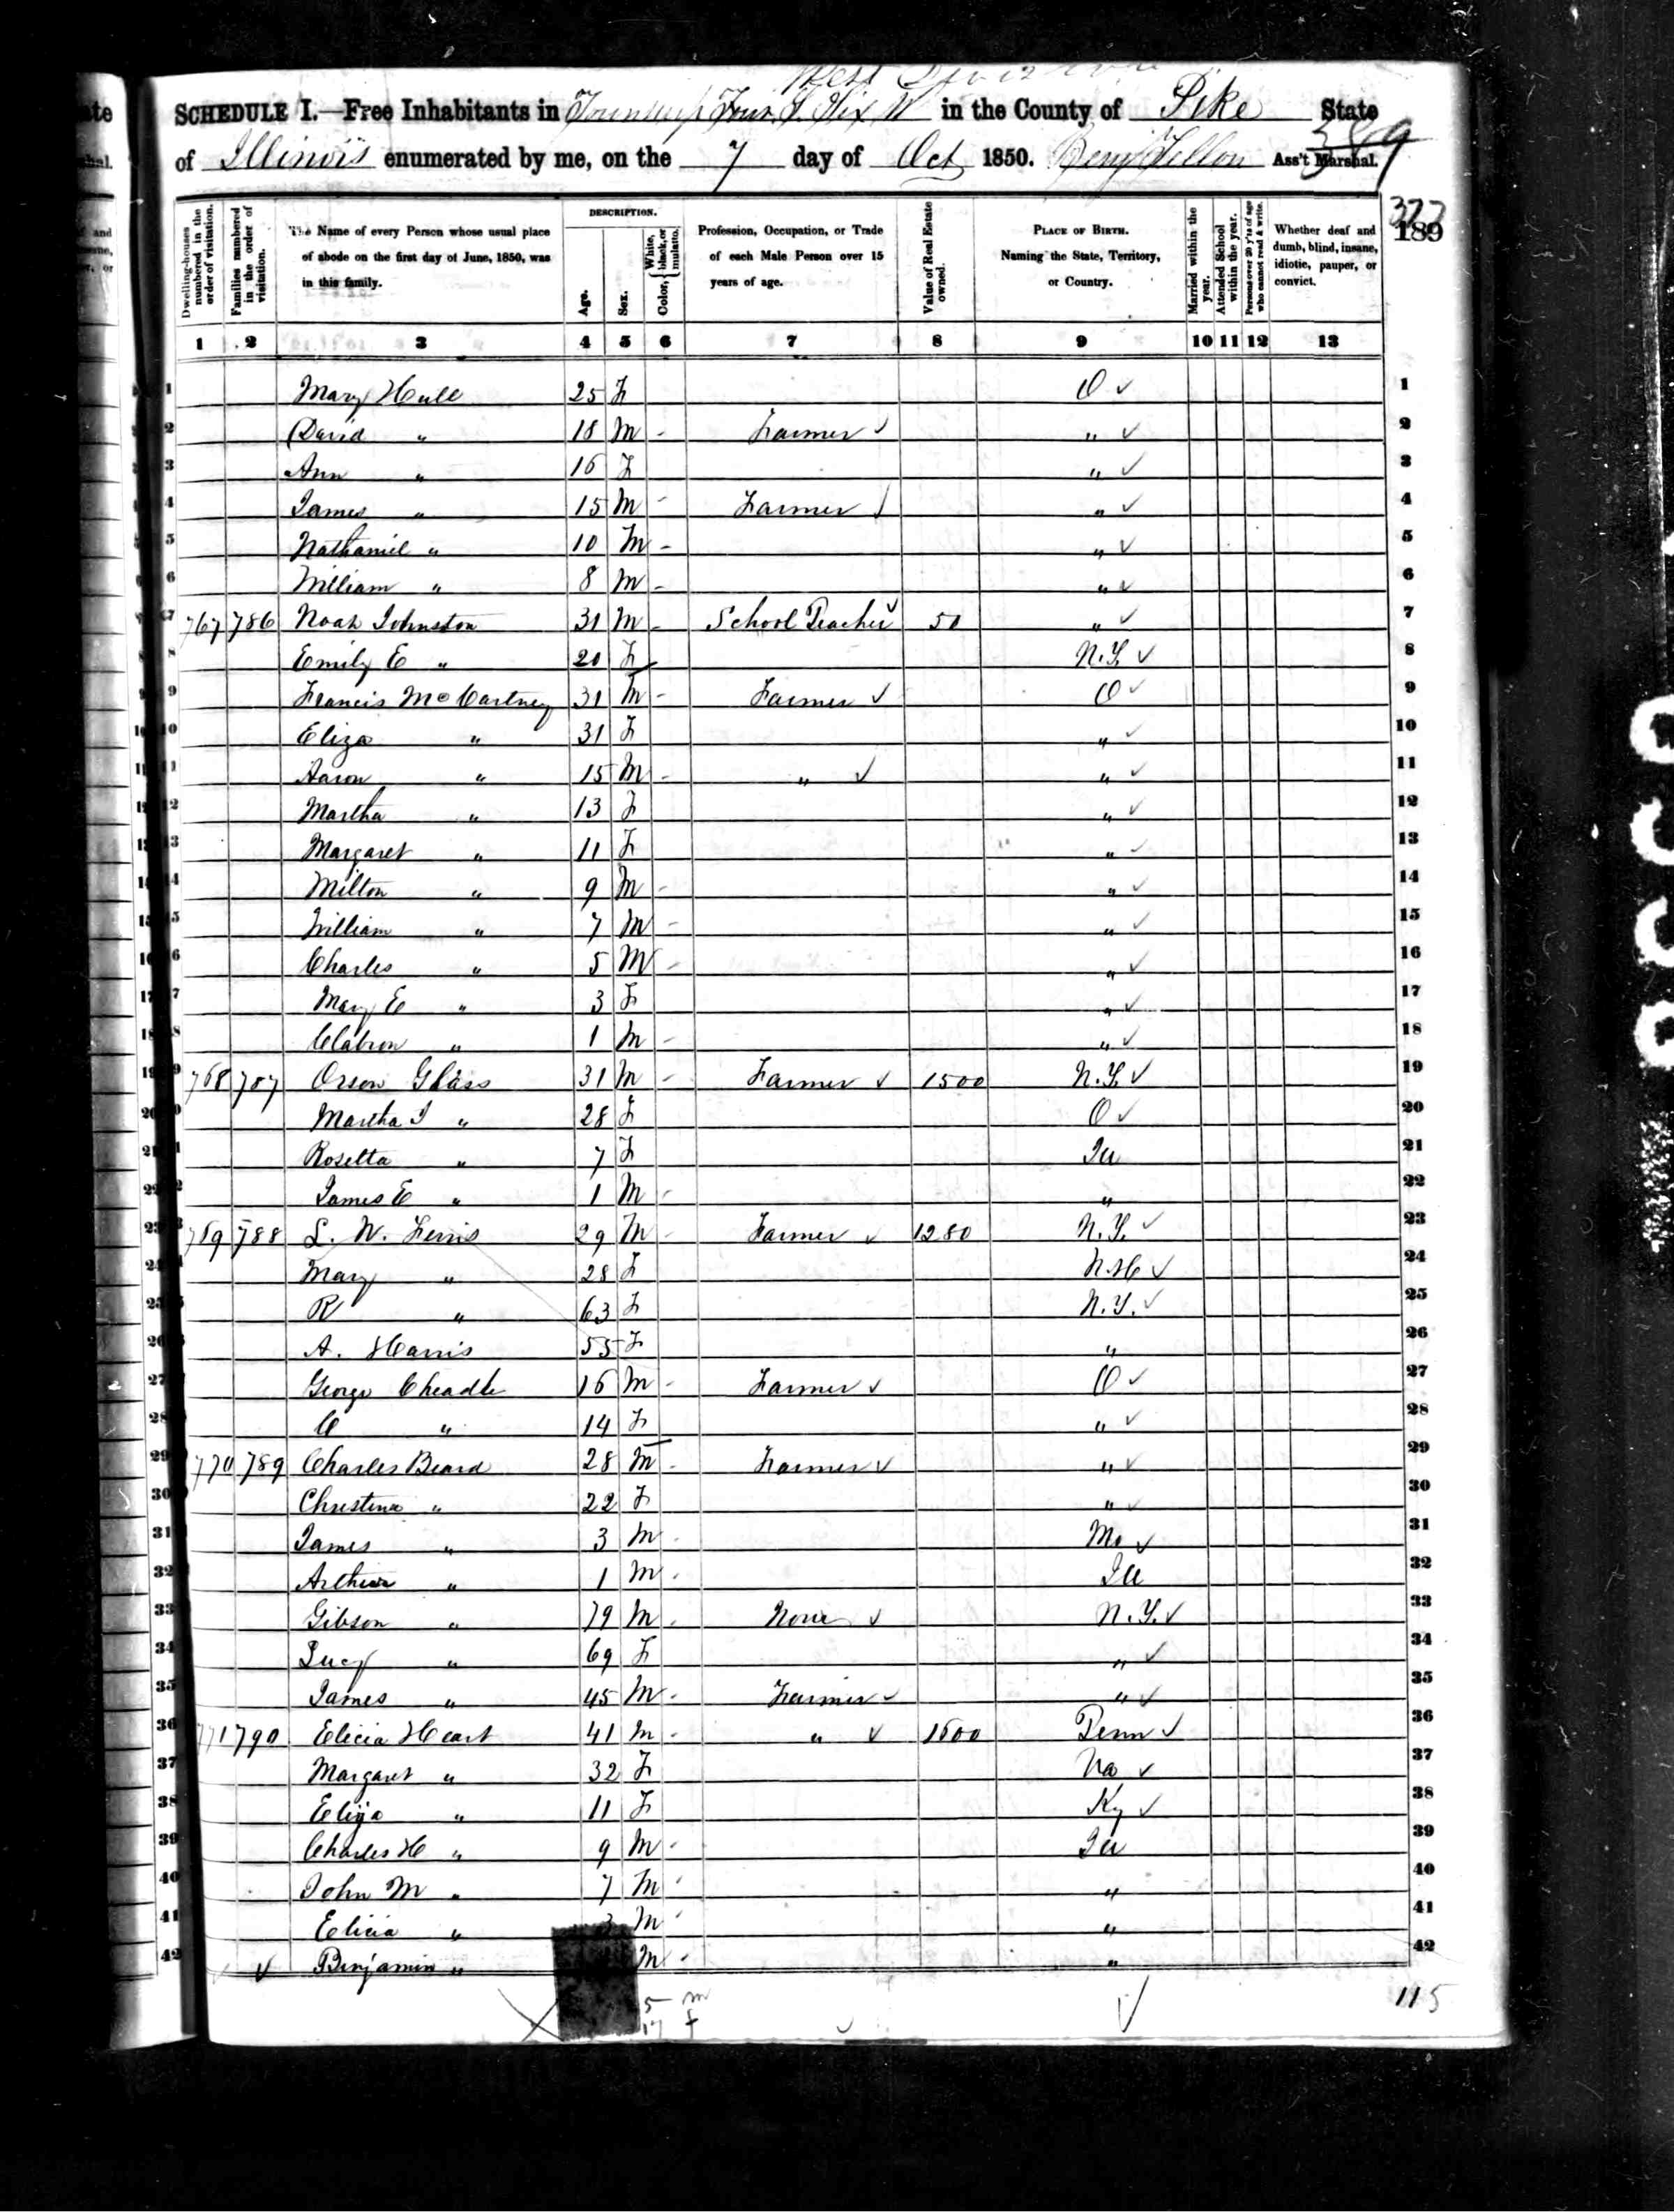 West Division
SCHEDULE I.—Free Inhabitants in Township Four S. Six W in the County of Pike State
of Illinois enumerated by me, on the 7 day of Oct 1850. Ass't Marshal.
389
323
189
Dwelling-houses numbered in the order of visitation. Families numbered in the order of visitation. The Name of every Person whose usual place of abode on the first day of June, 1850, was in this family. DESCRIPTION. Age. Sex. Color, White, black, or mulatto. Profession, Occupation, or Trade of each Male Person over 15 years of age. Value of Real Estate owned. PLACE OF BIRTH. Naming the State, Territory, or Country. Married within the year. Attended School within the year. Persons over 20 y'rs of age who cannot read & write. Whether deaf and dumb, blind, insane, idiotic, pauper, or convict.
1 2 3 4 5 6 7 8 9 10 11 12 13
1 Mary Hull 25 F O ✓ 1
2 David " 18 M - Farmer ✓ " ✓ 2
3 Ann " 16 F " ✓ 3
4 James " 15 M - Farmer ✓ " ✓ 4
5 Nathaniel " 10 M - " ✓ 5
6 William " 8 M - " ✓ 6
7 767 786 Noah Johnston 31 M - School Teacher ✓ 50 " ✓ 7
8 Emily E " 20 F N.Y. ✓ 8
9 Francis McCartney 31 M - Farmer ✓ O ✓ 9
10 Eliza " 31 F " ✓ 10
11 Aaron " 15 M - " ✓ " ✓ 11
12 Martha " 13 F " ✓ 12
13 Margaret " 11 F " ✓ 13
14 Milton " 9 M - " ✓ 14
15 William " 7 M - " ✓ 15
16 Charles " 5 M - " ✓ 16
17 Mary E " 3 F " ✓ 17
18 Clabron " 1 M - " ✓ 18
19 768 787 Orson Glass 31 M - Farmer ✓ 1500 N.Y. ✓ 19
20 Martha J " 28 F O ✓ 20
21 Rosetta " 7 F Ill 21
22 James E " 1 M - " 22
23 769 788 L. W. Ferris 29 M - Farmer ✓ 1280 N.Y. ✓ 23
24 Mary " 28 F N.H ✓ 24
25 R " 63 F N.Y. ✓ 25
26 A. Harris 55 F " 26
27 George Cheadle 16 M - Farmer ✓ O ✓ 27
28 C " 14 F " ✓ 28
29 770 789 Charles Beard 28 M - Farmer ✓ " ✓ 29
30 Christena " 22 F " ✓ 30
31 James " 3 M - Mo ✓ 31
32 Arthur " 1 M - Ill 32
33 Gibson " 79 M - None ✓ N.Y. ✓ 33
34 Lucy " 69 F " ✓ 34
35 James " 45 M - Farmer ✓ " ✓ 35
36 771 790 Elicia Heart 41 M - " ✓ 1600 Penn ✓ 36
37 Margaret " 32 F Va ✓ 37
38 Eliza " 11 F Ky ✓ 38
39 Charles H " 9 M - Ill 39
40 John M " 7 M - " 40
41 Elicia " 3 M - " 41
42 ✓ Benjamin " M - " 42
5 m
17 f
115